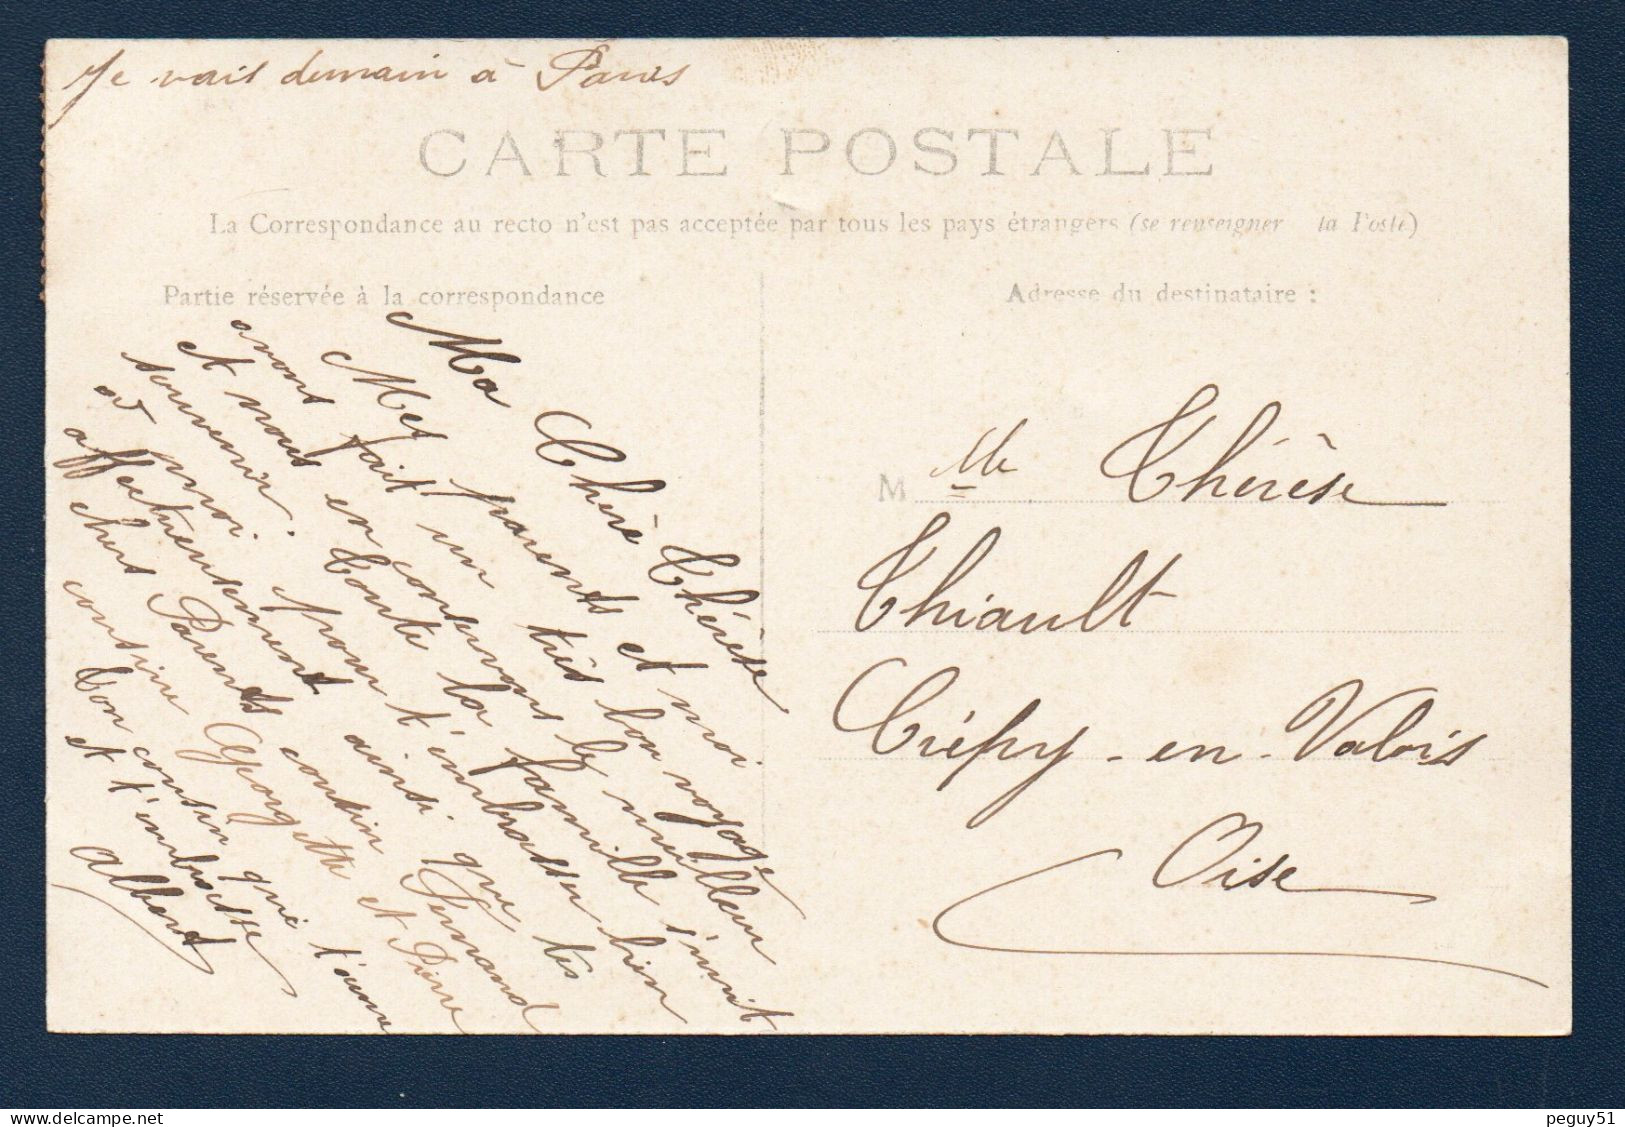 Je vais demain à Paris
CARTE POSTALE
La Correspondance au recto n'est pas acceptée par tous les pays étrangers (se renseigner la Poste)
Partie réservée à la correspondance
Ma Chère Thérèse
Mes parents et moi
avons fait un très bon voyage
et nous en conservons le meilleur
souvenir. Toute la famille s'unit
à moi pour t'embrasser bien
affectueusement ainsi que tes
chers Parents cousin Fernand
cousine Georgette et Pierre
Ton cousin qui t'aime
et t'embrasse
Albert
Adresse du destinataire :
M lle Thérèse
Thiault
Crépy-en-Valois
Oise
peguy51